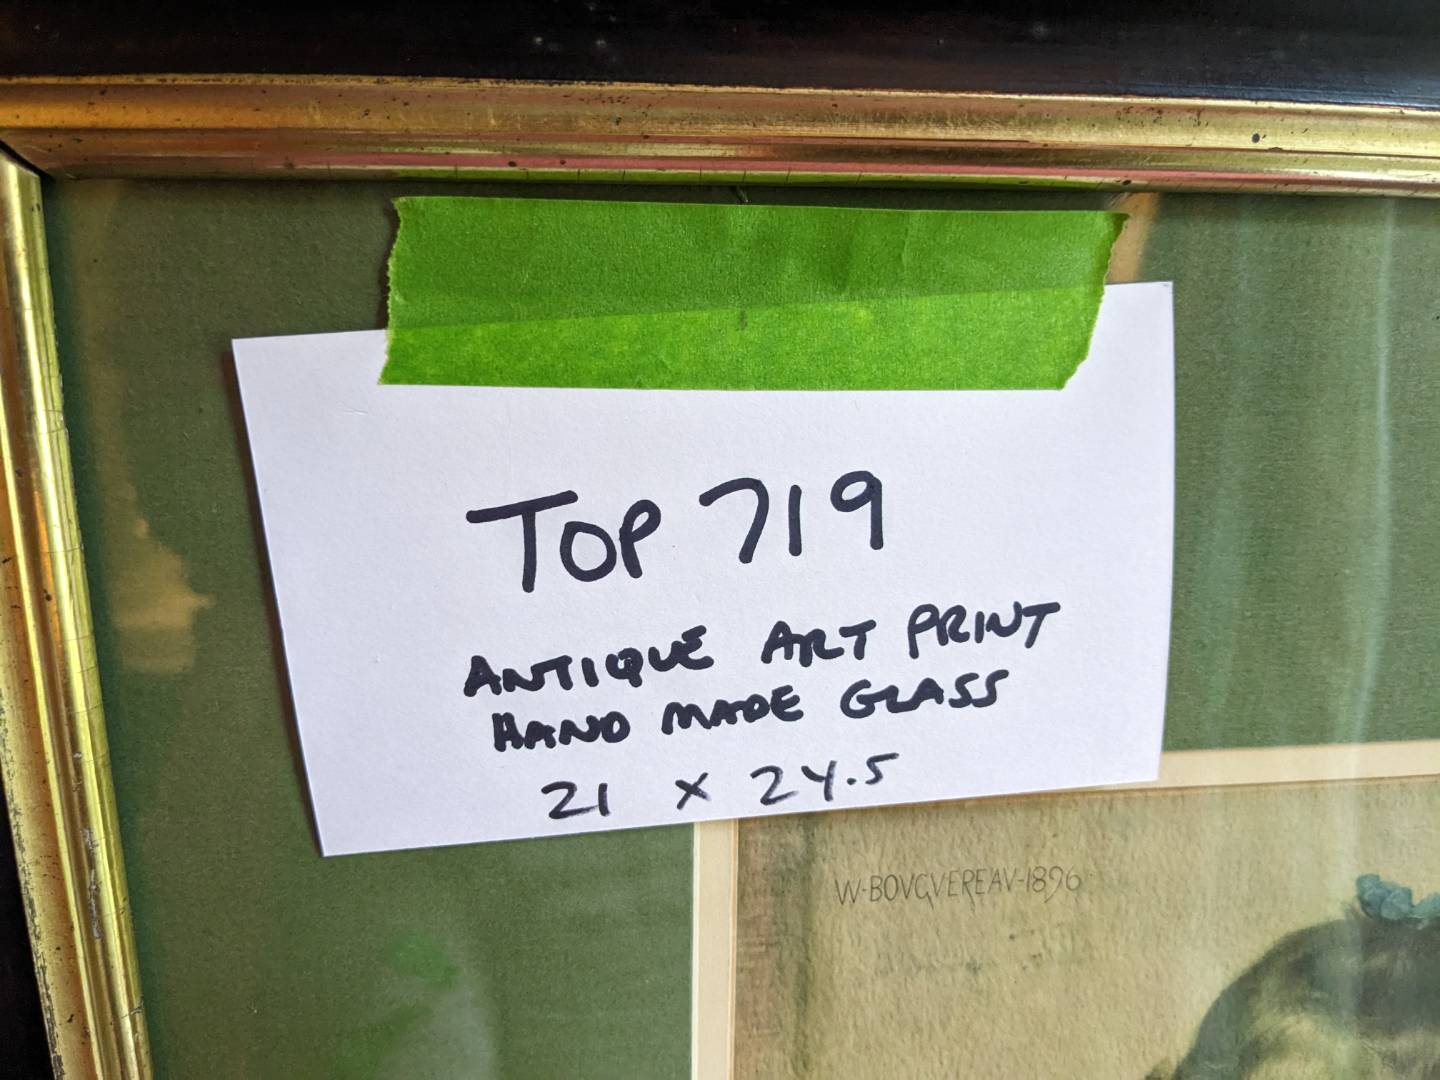 TOP 719
ANTIQUE ART PRINT
HAND MADE GLASS
21 x 24.5
W-BOVGVEREAV-1896